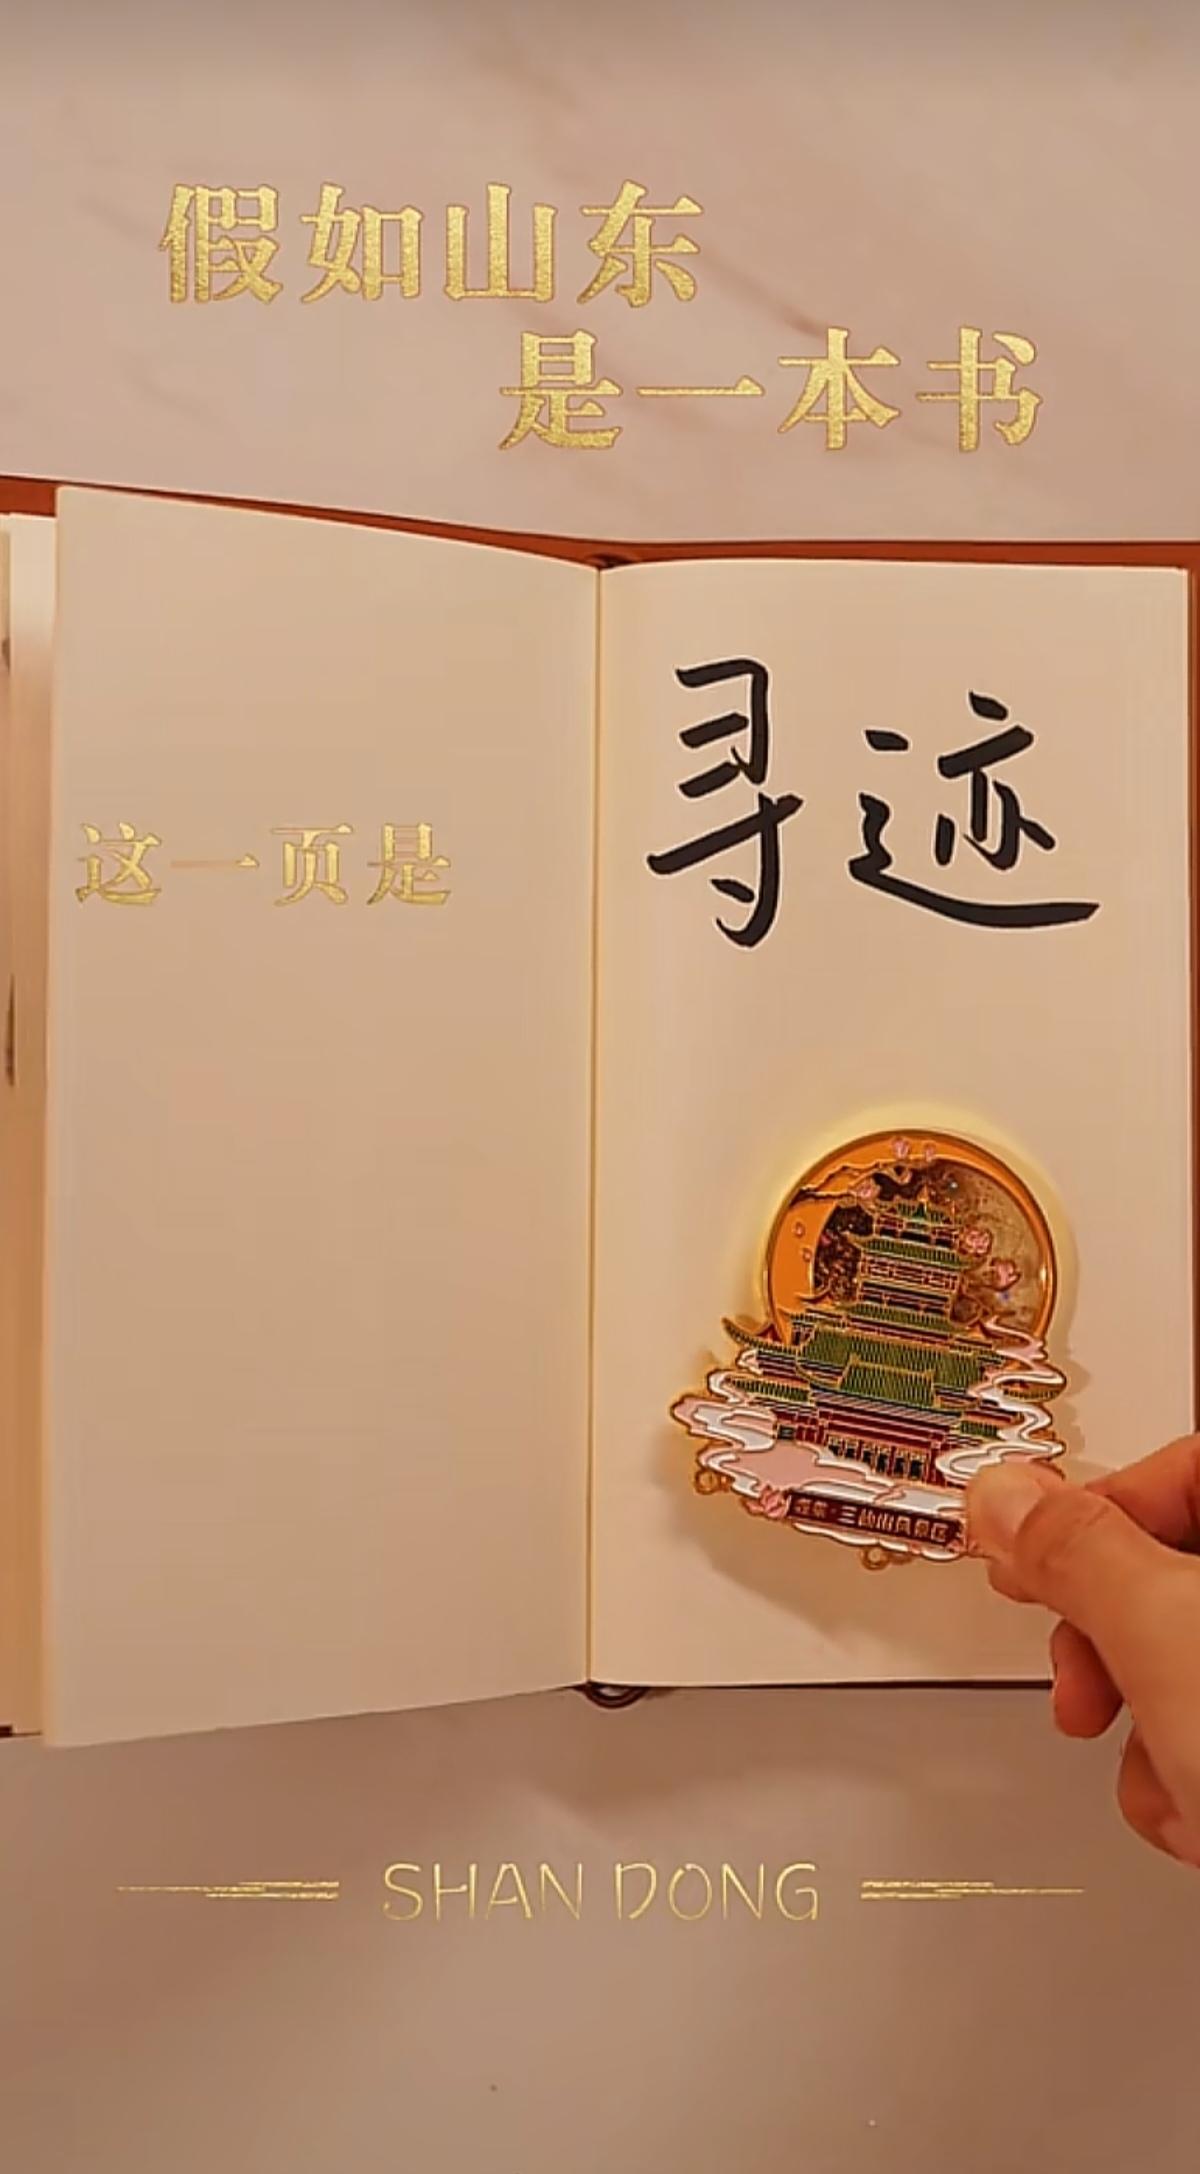 假如山东
是一本书
这一页是
寻迹
三仙山风景区
SHAN DONG